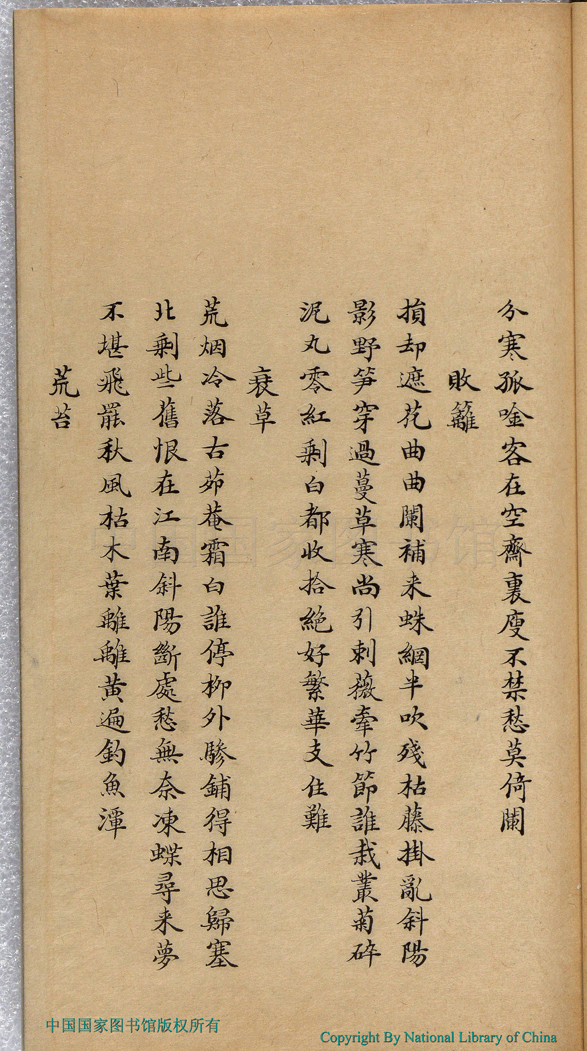 分寒孤唫客在空齋裏瘦不禁愁莫倚闌
敗籬
損却遮花曲曲闌補来蛛網半吹殘枯藤掛亂斜陽
影野笋穿過蔓草寒尚引刺薇牽竹節誰栽叢菊碎
泥丸零紅剩白都收拾絕好繁華支住難
衰草
荒烟冷落古茆菴霜白誰停栁外驂鋪得相思歸塞
北剩些舊恨在江南斜陽斷處愁無奈凍蝶尋来夢
不堪飛罷秋風枯木葉離離黃遍釣魚潭
荒苔
中国国家图书馆
中国国家图书馆版权所有
Copyright By National Library of China